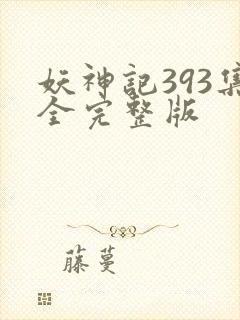 妖神記393集
全完整版
藤蔓